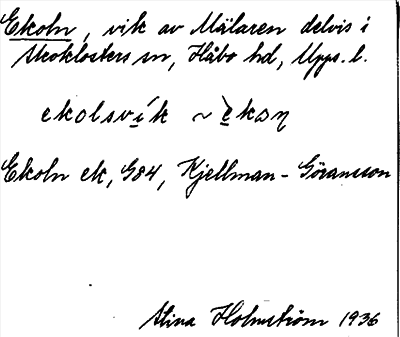 Ekoln, vik av Mälaren delvis i
Skoklosters sn, Håbo hd, Upps. l.
ekolsvík ~ èkoη
Ekoln ek, G84, Kjellman-Göransson
Stina Holmström 1936